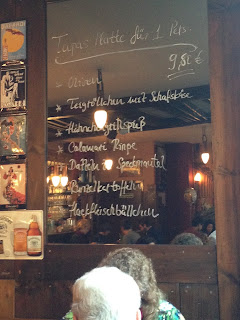 Tapas-Platte für 1 Pers.
9,50 €
- Oliven
* Teigröllchen mit Schafskäse
* Hähnchengrillspieß
* Calamari Ringe
* Datteln im Speckmantel
* Runzelkartoffeln
* Hackfleischbällchen